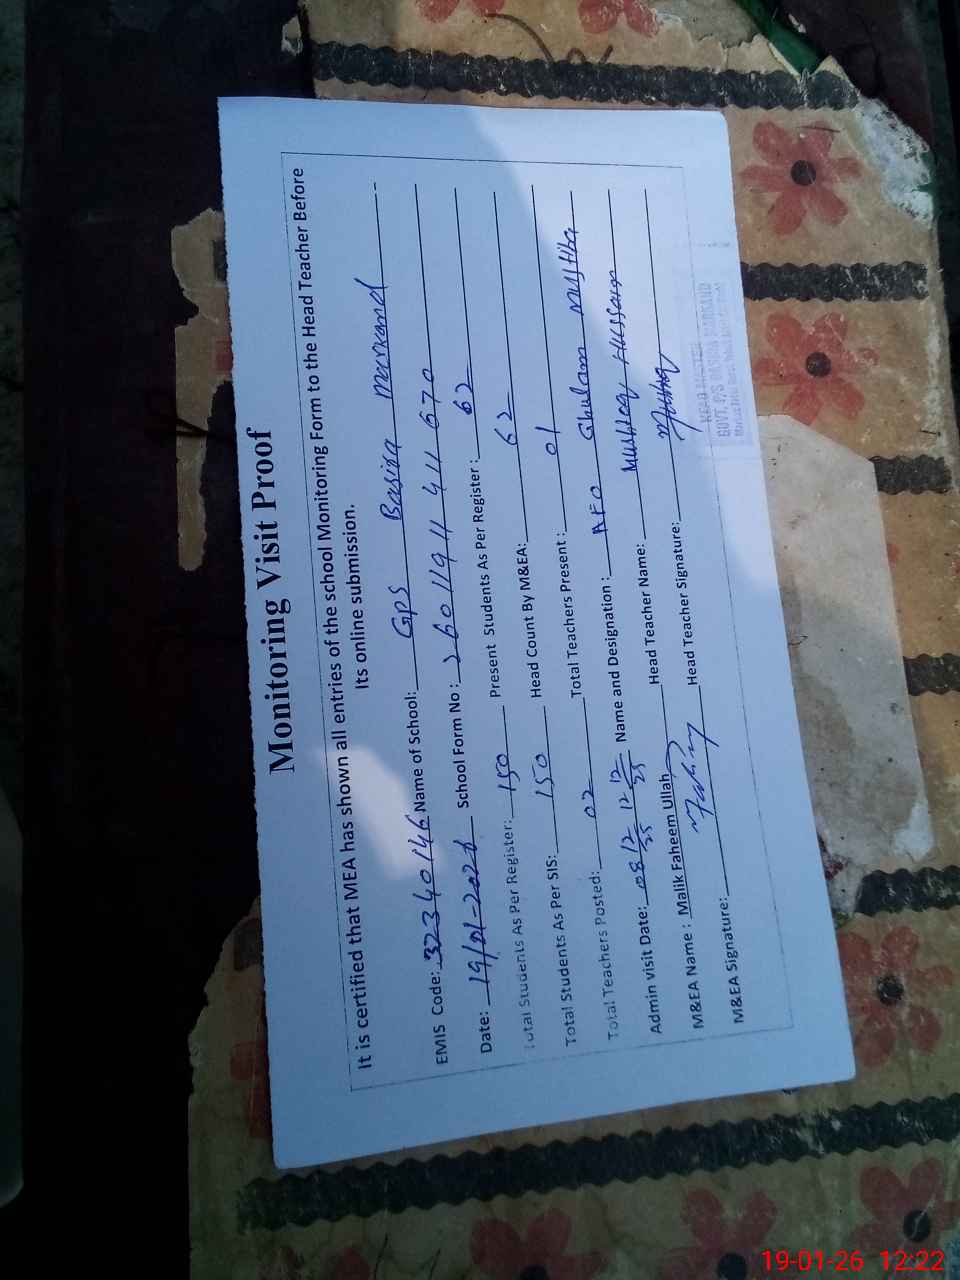 Monitoring Visit Proof
It is certified that MEA has shown all entries of the school Monitoring Form to the Head Teacher Before
Its online submission.
EMIS Code: 32340146 Name of School: GPS Basira
Date: 19/01-2026 School Form No : 260119 11 44 670
Total Students As Per Register: 150 Present Students As Per Register : 62
Total Students As Per SIS: 150 Head Count By M&EA: 62
Total Teachers Posted: 02 Total Teachers Present : 01
Admin visit Date: 08 12/25 12 12/25 Name and Designation : AEO Ghulam
M&EA Name : Malik Faheem Ullah Head Teacher Name: Mushtaq Hussain
M&EA Signature: Head Teacher Signature:
HEAD MASTER
GOVT. P/S BASIRA MARKAND
19-01-26 12:22